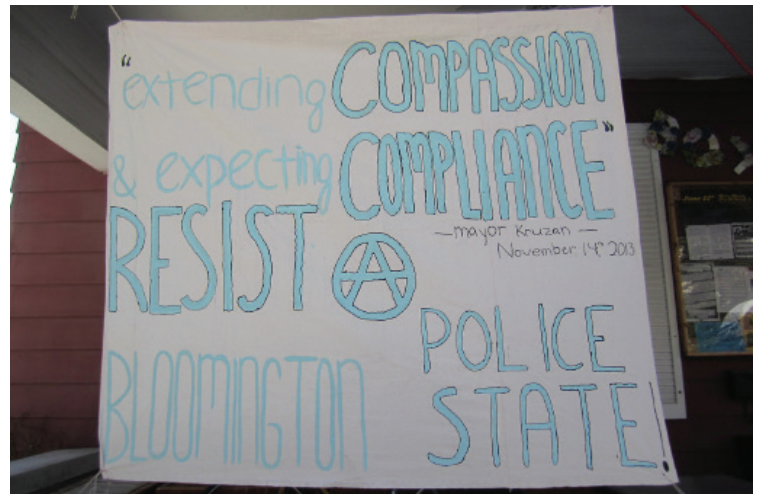 "extending COMPASSION
& expecting COMPLIANCE"
—mayor Kruzan—
November 14th 2013
RESIST A
POLICE
BLOOMINGTON
STATE!